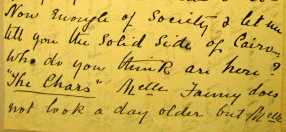 Now enough of Society & let me
tell you the Solid Side of Cairo.
Who do you think are here?
"The Chars" Melle Fanny does
not look a day older but Melle